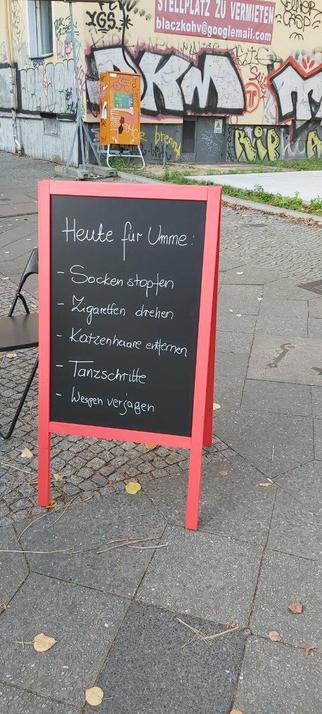 STELLPLATZ ZU VERMIETEN
blaczkohv@googlemail.com
Heute für Umme:
- Socken stopfen
- Zigaretten drehen
- Katzenhaare entfernen
- Tanzschritte
- Wespen verjagen